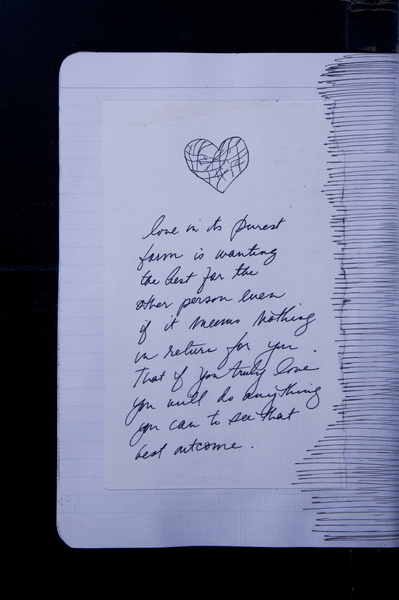 love in its purest
form is wanting
the best for the
other person even
if it means nothing
in return for you.
That if you truly love
you will do anything
you can to see that
best outcome.